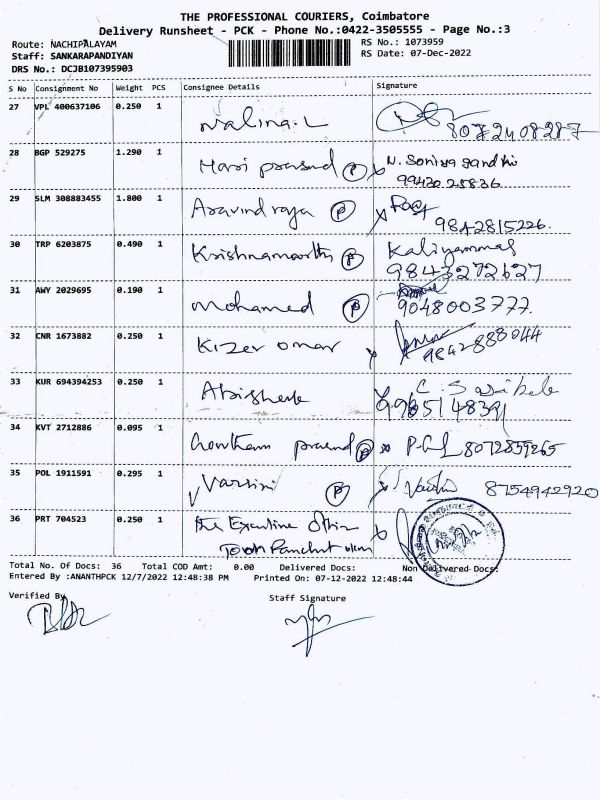 THE PROFESSIONAL COURIERS, Coimbatore
Delivery Runsheet - PCK - Phone No.:0422-3505555 - Page No.:3
Route: NACHIPALAYAM
Staff: SANKARAPANDIYAN
DRS No.: DCJB107395903
RS No.: 1073959
RS Date: 07-Dec-2022
S No Consignment No Weight PCS Consignee Details Signature
27 VPL 400637106 0.250 1 Nalina.L 8072408287
28 BGP 529275 1.290 1 Hari prasad P N. Soniya gandhi
99430 28836
29 SLM 308883455 1.800 1 Aravind raja P
9842815226.
30 TRP 6203875 0.490 1 Krishnamoorthi P Kaliyammal
9843272627
31 AWY 2029695 0.190 1 Mohamed P 9048003777.
32 CNR 1673882 0.250 1 Kizer omar 9842888044
33 KUR 694394253 0.250 1 Abishek
34 KVT 2712886 0.095 1 Gowtham prasad P 8072859265
35 POL 1911591 0.295 1 Varsini P 8754942920
36 PRT 704523 0.250 1 The Executive
Total No. Of Docs: 36 Total COD Amt: 0.00 Delivered Docs: Non Delivered Docs:
Entered By :ANANTHPCK 12/7/2022 12:48:38 PM Printed On: 07-12-2022 12:48:44
Verified By
Staff Signature